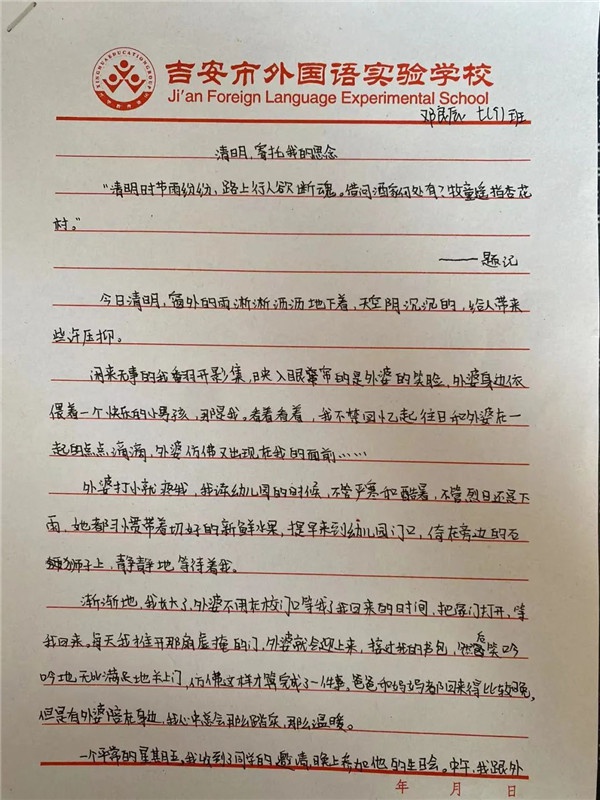 吉安市外国语实验学校
Ji'an Foreign Language Experimental School
邓良辰 七(9)班
清明,寄托我的思念
"清明时节雨纷纷,路上行人欲断魂。借问酒家何处有?牧童遥指杏花
村。"
——题记
今日清明,窗外的雨淅淅沥沥地下着,天空阴沉沉的,给人带来
些许压抑。
闲来无事的我翻开影集,映入眼帘的是外婆的笑脸,外婆身边依
偎着一个快乐的小男孩,那是我。看着看着,我不禁回忆起往日和外婆在一
起的点点滴滴,外婆仿佛又出现在我的面前……
外婆打小就疼我,我读幼儿园的时候,不管严寒和酷暑,不管烈日还是下
雨,她都习惯带着切好的新鲜水果,提早来到幼儿园门口,倚在旁边的石
狮子上,静静地等待着我。
渐渐地,我长大了,外婆不用在校门口等我了我回来的时间,把房门打开,等
我回来。每天我推开那扇虚掩的门,外婆就会迎上来,接过我的书包,然后笑吟
吟地无比满足地关上门,仿佛这样才算完成了一件事。爸爸和妈妈都回来得比较晚,
但是有外婆陪在身边,我心中总会那么踏实,那么温暖。
一个平常的星期五,我收到了同学的邀请,晚上参加他的生日会。中午,我跟外
年 月 日